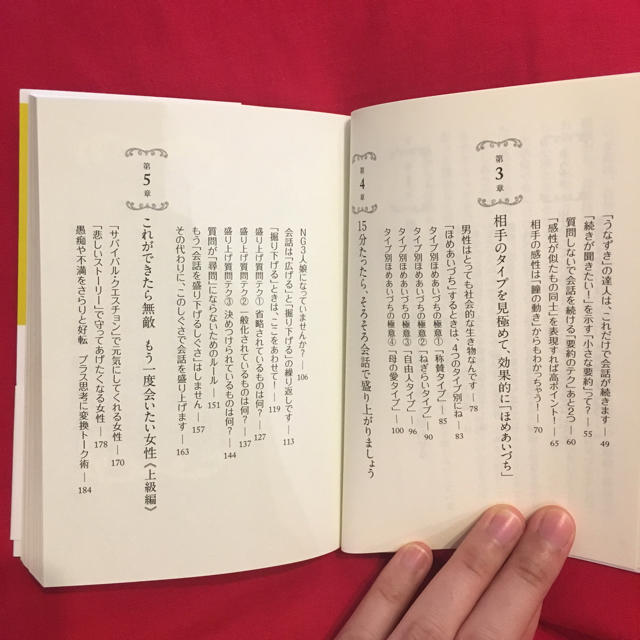 「うなずき」の達人は、これだけで会話が続きます―49
「続きが聞きたい！」を示す「小さな要約」って？―55
質問しないで会話を続ける「要約のテク」あと2つ―60
「感性が似たもの同士」を表現すれば高ポイント！―65
相手の感性は「瞳の動き」からもわかっちゃう！―70
第3章
相手のタイプを見極めて、効果的に「ほめあいづち」
男性はとっても社会的な生き物なんです―78
「ほめあいづち」するときは、4つのタイプ別にね―83
タイプ別ほめあいづちの極意①「称賛タイプ」―85
タイプ別ほめあいづちの極意②「ねぎらいタイプ」―90
タイプ別ほめあいづちの極意③「自由人タイプ」―96
タイプ別ほめあいづちの極意④「母の愛タイプ」―100
第4章
15分たったら、そろそろ会話で盛り上がりましょう
NG3人娘になっていませんか？―106
会話は「広げる」と「掘り下げる」の繰り返しです―113
「掘り下げる」ときは、ここをあわせて！―119
盛り上げ質問テク① 省略されているものは何？―127
盛り上げ質問テク② 一般化されているものは何？―137
盛り上げ質問テク③ 決めつけられているものは何？―144
質問が「尋問」にならないためのルール―151
もう「会話を盛り下げるしぐさ」はしません―157
その代わりに、このしぐさで会話を盛り上げます―163
第5章
これができたら無敵 もう一度会いたい女性《上級編》
「サバイバル・クエスチョン」で元気にしてくれる女性―170
「悲しいストーリー」で守ってあげたくなる女性―178
愚痴や不満をさらりと好転 プラス思考に変換トーク術―184